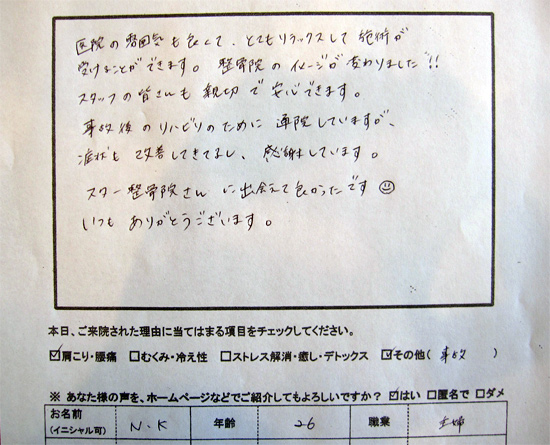 医院の雰囲気も良くて、とてもリラックスして施術が
受けることができます。整骨院のイメージが変わりました!!
スタッフの皆さんも親切で安心できます。
事故後のリハビリのために通院していますが、
症状も改善してきてるし、感謝しています。
スター整骨院さんに出会えて良かったです☺
いつもありがとうございます。
本日、ご来院された理由に当てはまる項目をチェックしてください。
☑肩こり・腰痛 □むくみ・冷え性 □ストレス解消・癒し・デトックス ☑その他( 事故 )
※ あなた様の声を、ホームページなどでご紹介してもよろしいですか? ☑はい □匿名で □ダメ
お名前 N.K 年齢 26 職業 主婦
(イニシャル可)